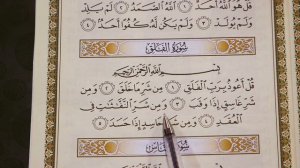 قُلْ هُوَ ٱللَّهُ أَحَدٌ ١ ٱللَّهُ ٱلصَّمَدُ ٢ لَمْ يَلِدْ
وَلَمْ يُولَدْ ٣ وَلَمْ يَكُن لَّهُۥ كُفُوًا أَحَدٌۢ ٤
سُورَةُ الفَلَقِ
بِسْمِ ٱللَّهِ ٱلرَّحْمَٰنِ ٱلرَّحِيمِ
قُلْ أَعُوذُ بِرَبِّ ٱلْفَلَقِ ١ مِن شَرِّ مَا خَلَقَ ٢ وَمِن
شَرِّ غَاسِقٍ إِذَا وَقَبَ ٣ وَمِن شَرِّ ٱلنَّفَّٰثَٰتِ فِى
ٱلْعُقَدِ ٤ وَمِن شَرِّ حَاسِدٍ إِذَا حَسَدَ ٥
سُورَةُ النَّاسِ